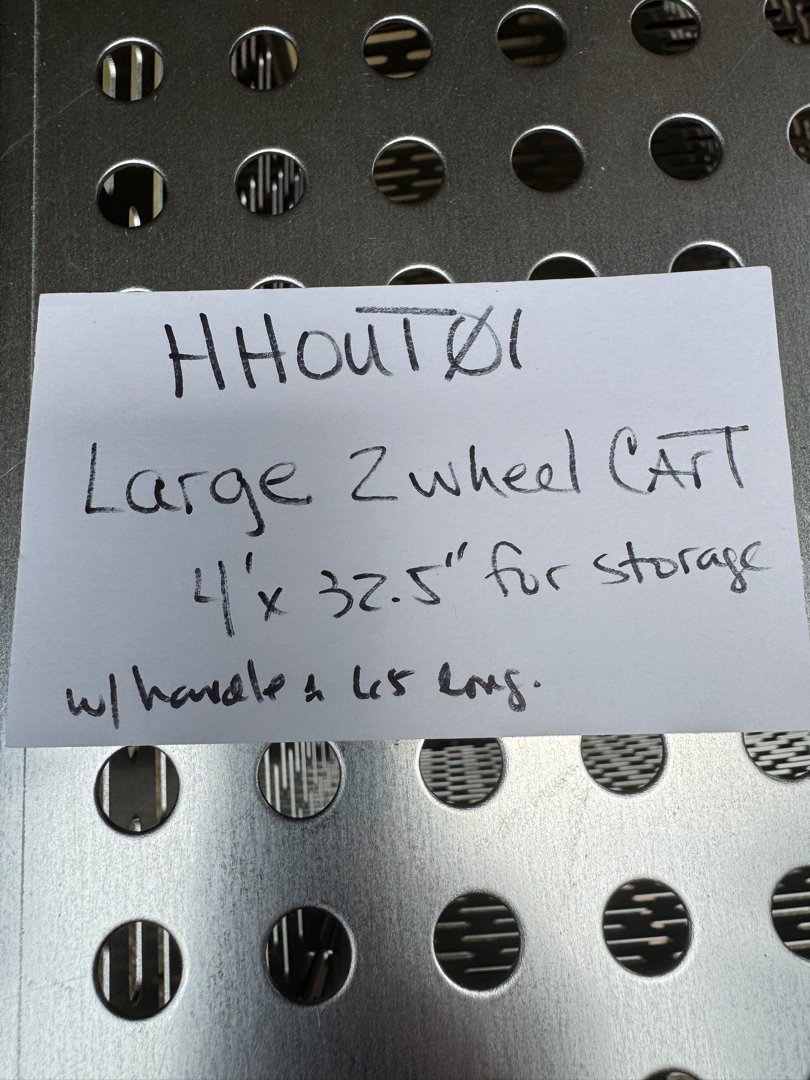 HHOUTØ1
Large 2 wheel CArT
4'x 32.5" for storage
w/ handle long.